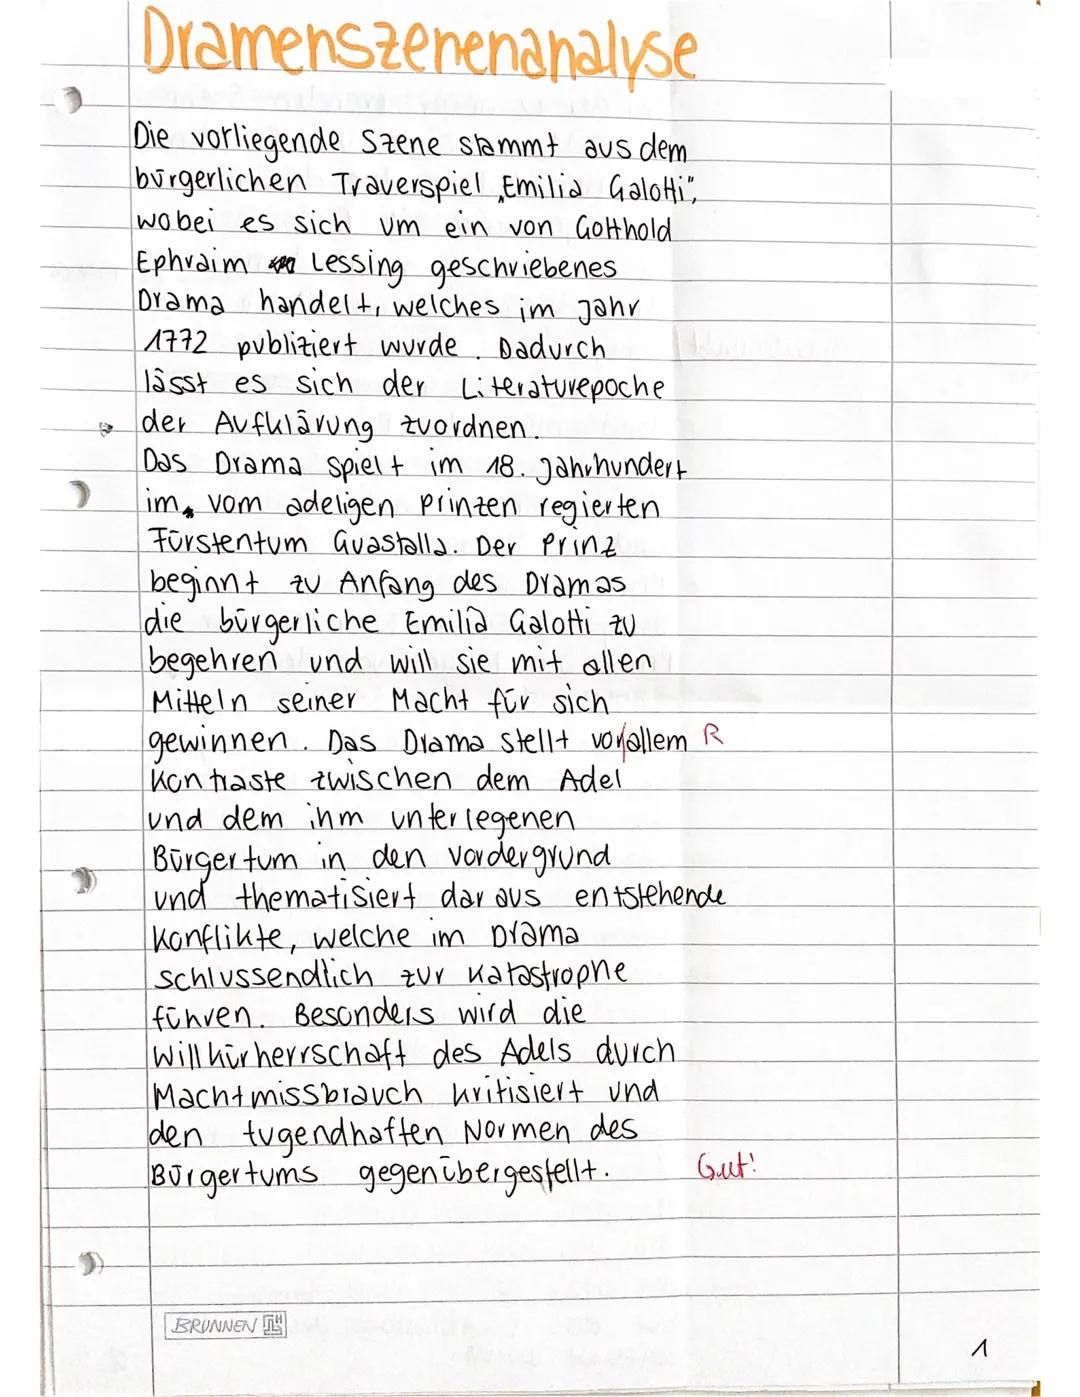 Dramenszenenanalyse
Die vorliegende Szene stammt aus dem
bürgerlichen Trauerspiel „Emilia Galotti",
wobei es sich um ein von Gotthold
Ephraim Lessing geschriebenes
Drama handelt, welches im Jahr
1772 publiziert wurde. Dadurch
lässt es sich der Literaturepoche
der Aufklärung zuordnen.
Das Drama spielt im 18. Jahrhundert
im, vom adeligen Prinzen regierten
Fürstentum Guastalla. Der Prinz
beginnt zu Anfang des Dramas
die bürgerliche Emilia Galotti zu
begehren und will sie mit allen
Mitteln seiner Macht für sich
gewinnen. Das Drama stellt vor/allem R
Kontraste zwischen dem Adel
und dem ihm unterlegenen
Bürgertum in den Vordergrund
und thematisiert daraus entstehende
Konflikte, welche im Drama
schlussendlich zur Katastrophe
führen. Besonders wird die
Willkürherrschaft des Adels durch
Machtmissbrauch kritisiert und
den tugendhaften Normen des
Bürgertums gegenübergestellt. Gut!
BRUNNEN
1